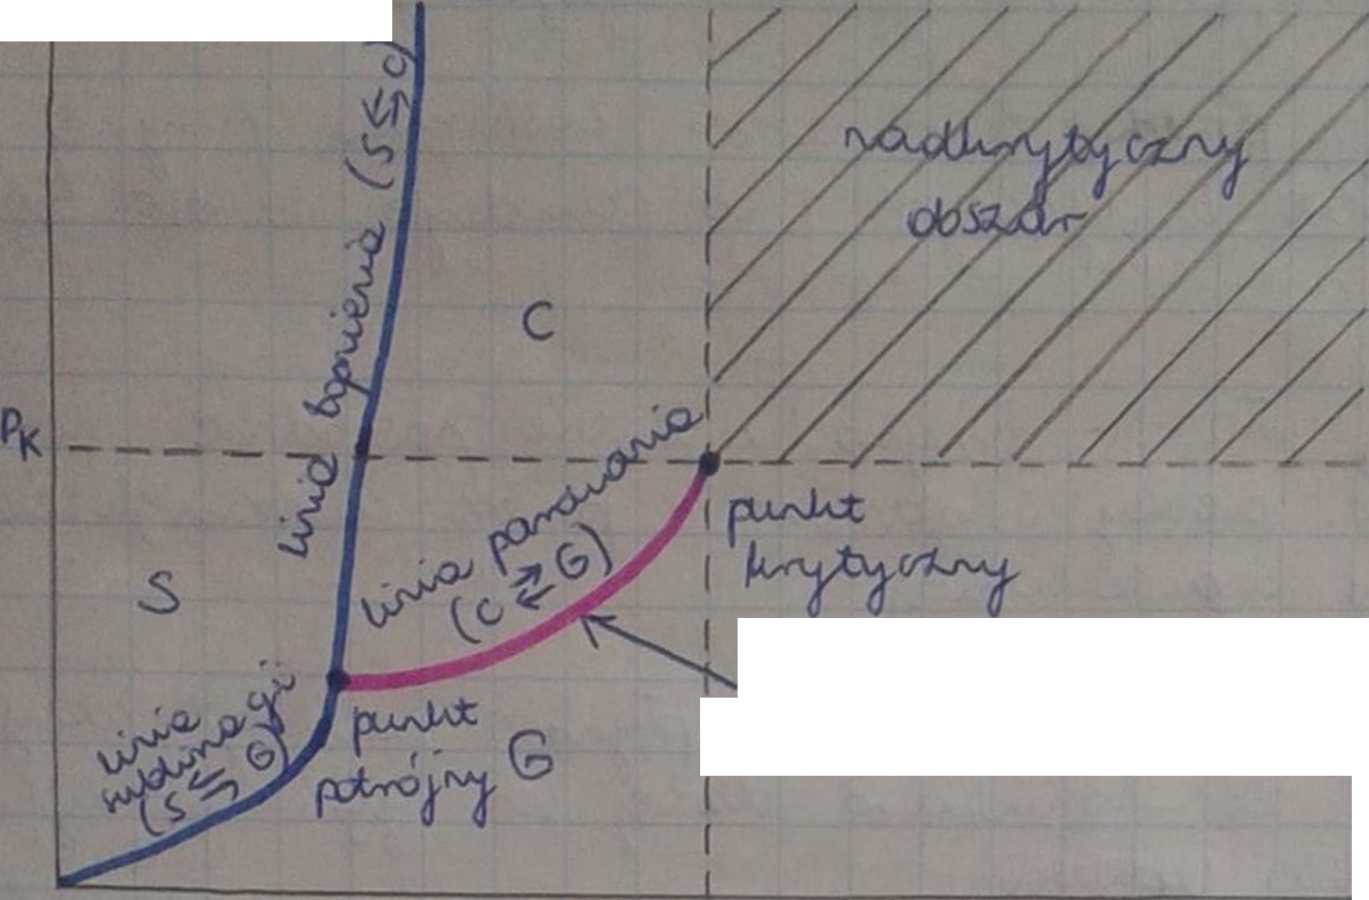 nadkrytyczny
obszar
linia topnienia (S ⇄ C)
C
PK
linia parowania
(C ⇄ G)
punkt
krytyczny
S
linia
sublimacji
(S ⇆ G)
punkt
potrójny
G